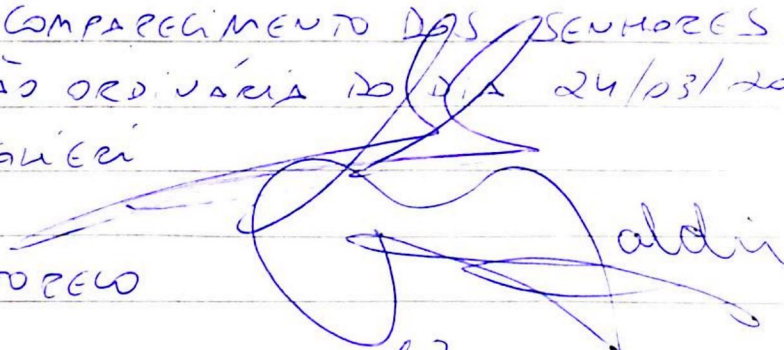 COMPARECIMENTO DOS SENHORES
ÃO ORDINÁRIA DO DIA 24/03/20
GLIERI
aldi
TORELO